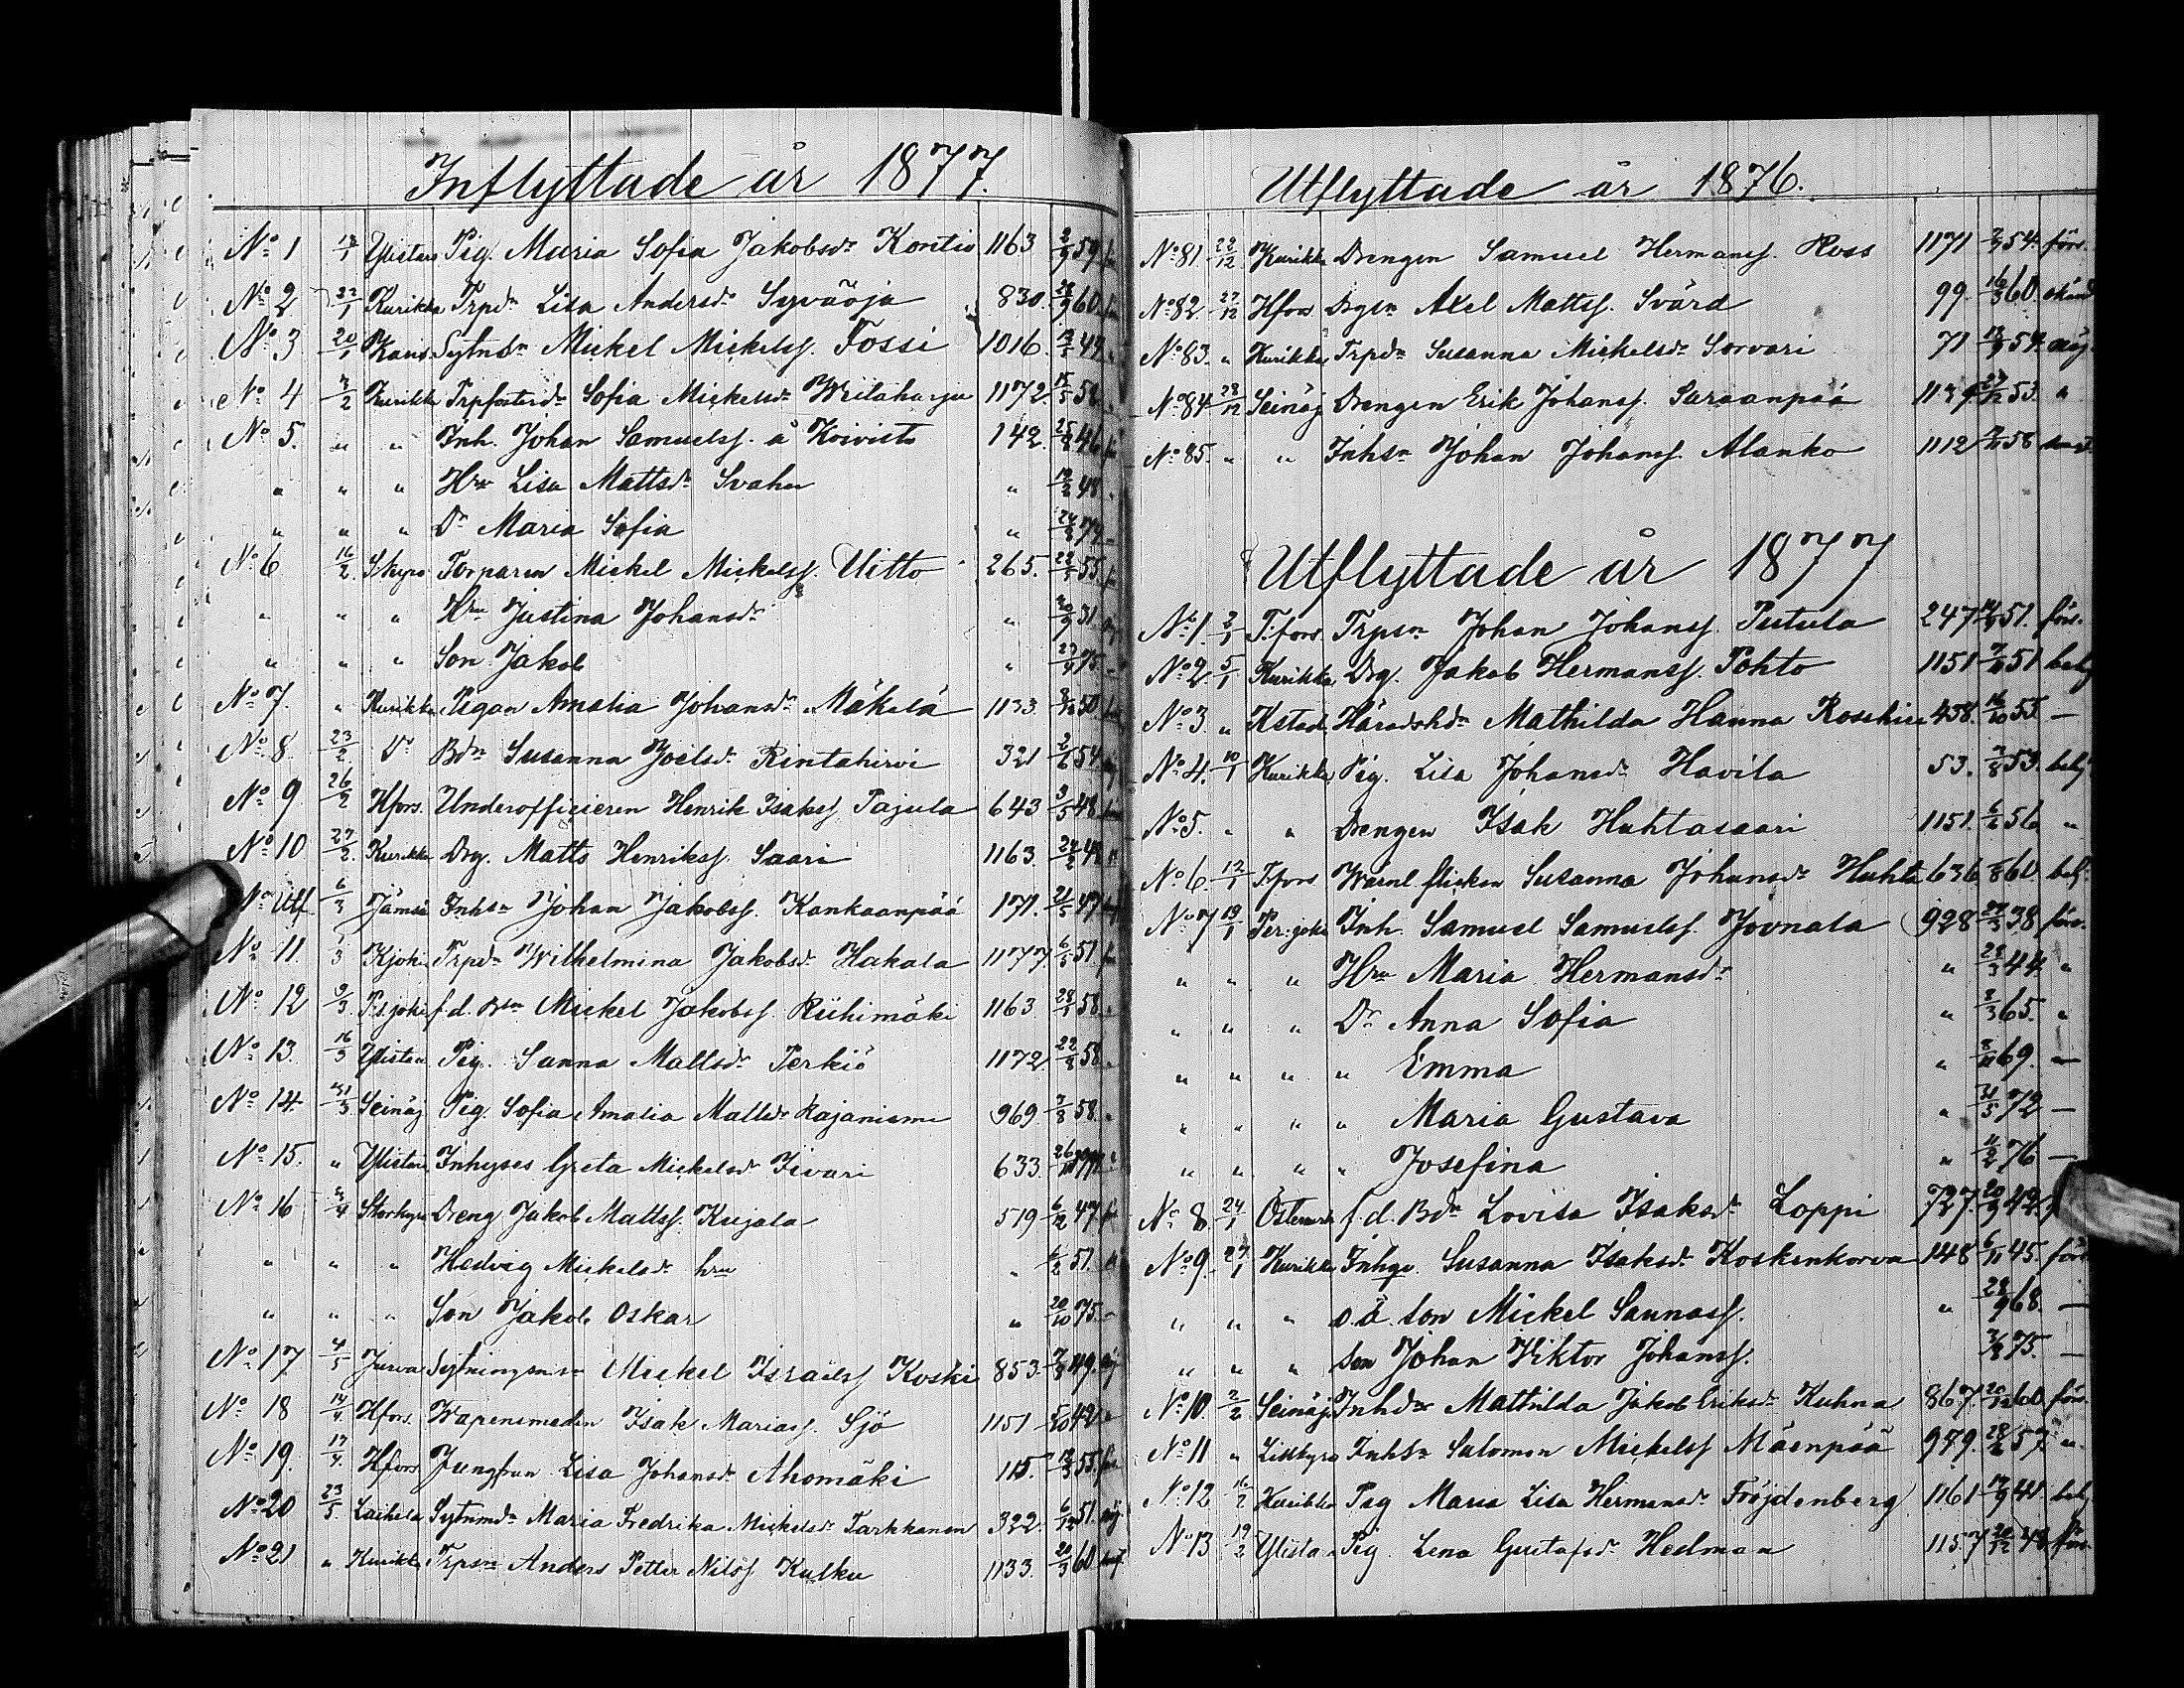 Inflyttade år 1877.
No 1 Ylistaro Pig. Maria Sofia Jakobsdr Kontio 1163 2/9 59
No 2 22/1 Kurikka Trpdr Lisa Andersdr Syväoja 830. 60.
No 3 20/1 Kauh Sytndn Mickel Mickelss. Fossi 1016. 49
No 4 2/2 Kurikka Sofia Mickelsdr 1172 58
No 5. " " Inh. Johan Samuelss. å Koivisto 142. 46
" " " Hru Lisa Mattsdr Svahn " 48
" " " Dr Maria Sofia " 74 -
No 6 16/2 Skyro Torparen Mickel Mickelss. Uitto 265. 55.
" " " Hru Justina Johansdr " 31.
" " " Son Jakob " 75. -
No 7. " Kurikka Pigan Amalia Johansdr Mäkelä 1133. 50
No 8 23/2 Do Bdn Susanna Joelsdr Rintahirvi 321 2/6 54
No 9 26/2 Hfors. Underofficieren Henrik Isakss. Pajula 643 3/5 48
No 10 27/2. Kurikka Drg. Matts Henrikss. Saari 1163. 24/2
No Utf 6/3 Jämsä Inhsn Johan Jakobss. Kankaanpää 171. 21/5 47
No 11. 1/3 Kjoki Trpdr Wilhelmina Jakobsdr Hakala 1177. 6/5 51.
No 12 9/3. f.d. Bsn Mickel Jakobss. Riihimäki 1163. 28/1 58.
No 13. 16/3 Ylistaro Pig. Sanna Mattsdr Perkiö 1172. 58.
No 14. 31/3 Seinäj Pig. Sofia Amalia Mattsdr Rajaniemi 969. 7/8 58.
No 15. " Ylistaro Inhyses Greta Mickelsdr Iivari 633.
No 16 4/4 Storkyro Dreng Jakob Mattss. Kujala 519 6/12 47
" " " Hedvig Mickelsdr hru " 51.
" " " Son Jakob Oskar " 20/10 75. -
No 17. 4/5 Jurva Mickel Israelss Koski 853. 49.
No 18 14/4. Hfors. Wapensmeden Isak Mariass. Sjö 1151 42
No 19. 17/4. Hfors Jungfrun Lisa Johansdr Ahomäki 115. 55.
No 20 23/5. Laihela Sytnmdr Maria Fredrika Mickelsdr Tarkkanen 322. 6/12 51.
No 21 " Kurikka Trpsn Anders Petter Nilss Kulku 1133. 20/3 60.
Utflyttade år 1876.
No 81. 22/12 Kurikka Drengen Samuel Hermanss. Ross 1171 54. förs.
No 82. 27/12 Hfors Drgsn Axel Mattss. Svärd 99. 16/3 60.
No 83. " Kurikka Trpdr Susanna Mickelsdr Sorvari 71 54.
No 84 28/12 Seinäj Drengen Erik Johanss. Saraanpää 53. "
No 85. " " Inhsn Johan Johanss. Alanko 1112 58
Utflyttade år 1877
No 1. T.fors. Trpsn Johan Johanss. Putula 247 51. förs.
No 2. 5/1 Kurikka Drg. Jakob Hermanss. Pohto 1151 51
No 3. " Kstad. Häradshdr Mathilda Hanna 438. 16/10 55. —
No 4. 10/1 Kurikka Pig. Lisa Johansdr Havila 53. 7/8 53.
No 5. " " Drengen Isak Huhtasaari 1151. 56 "
No 6. 12/1 T.fors Wärnl. flickan Susanna Johansdr Huhta 636 60.
No 7 19/1 Inh. Samuel Samuelss. Jovnala 928 38 förs.
" " " Hru Maria Hermansdr " 28/3 44. "
" " " Dr Anna Sofia " 8/3 65. "
" " " " Emma " 8/11 69. —
" " " " Maria Gustava " 31/5 72 —
" " " " Josefina " 11/2 76 —
No 8. 24/1 f.d. Bdn Lovisa Isaksdr Loppi 727. 20/9 42.
No 9. 27/1 Kurikka Susanna Isaksdr Koskenkorva 148 6/11 45.
" " " o.ä. son Mickel Sannass. " 28/9 68. —
" " " Son Johan Viktor Johanss. 75. —
No 10. 2/2 Seinäj Inhdr Mathilda Jakob Eriksdr Kuhna 867. 60. förs.
No 11 " Lillkyro Inhsn Salomon Mickelss Mäenpää 979. 57. "
No 12 16/2 Kurikka Pig Maria Lisa Hermansdr Fröjdenberg 1161
No 13 19/2 Ylistaro Pig. Lena Gustafsdr Hedman 1157 förs.